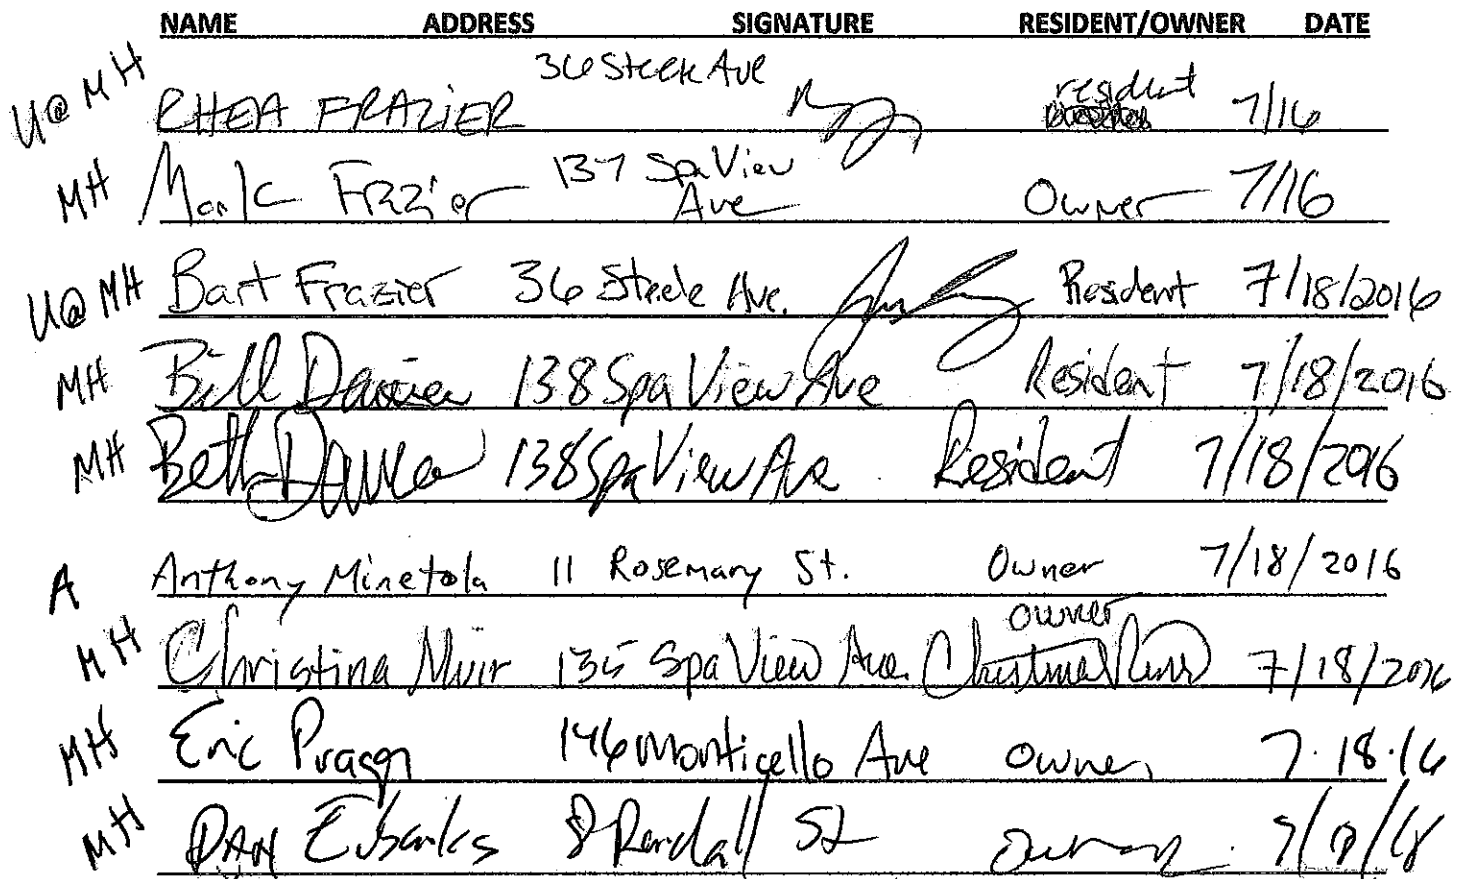 NAME ADDRESS SIGNATURE RESIDENT/OWNER DATE
36 Steele Ave
U@MH RHEA FRAZIER resident 7/16
MH Mark Frazier 137 Spa View Ave Owner 7/16
U@MH Bart Frazier 36 Steele Ave. Resident 7/18/2016
MH Bill 138 Spa View Ave Resident 7/18/2016
MH Beth 138 Spa View Ave Resident 7/18/2016
A Anthony Minetola 11 Rosemary St. Owner 7/18/2016
owner
MH Christina Muir 135 Spa View Ave. Christina Muir 7/18/2016
MH Eric 146 Monticello Ave owner 7.18.16
MH DAN Eubanks 8 Randall St Owner